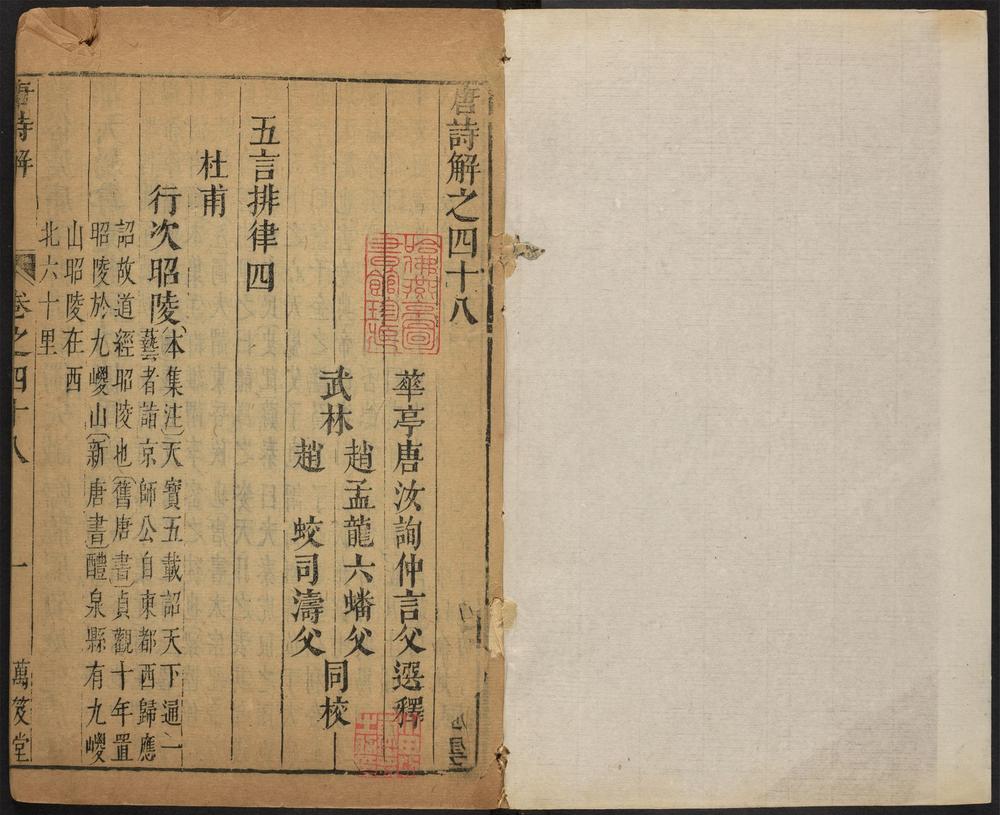 唐詩解之四十八
華亭唐汝詢仲言父選釋
趙孟龍六蟠父
武林 同校
趙 蛟司濤父
五言排律四
杜甫
行次昭陵
本集注天寶五載詔天下通一
藝者詣京師公自東都西歸應
詔故道經昭陵也舊唐書貞觀十年置
昭陵於九嵕山新唐書醴泉縣有九嵕
山昭陵在西
北六十里
唐詩解 卷之四十八 一 萬笈堂
哈佛燕京圖
書館珍藏